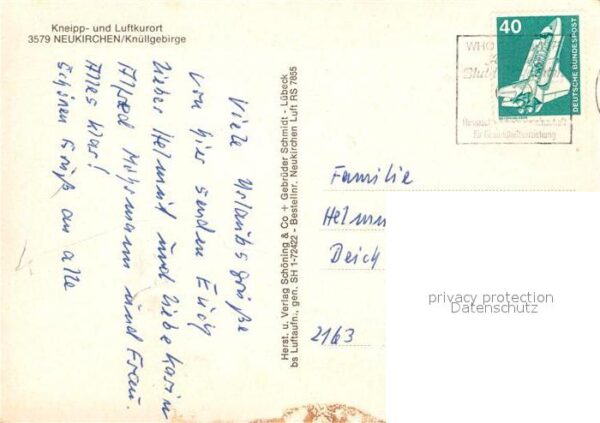 Kneipp- und Luftkurort
3579 NEUKIRCHEN/Knüllgebirge
Viele Urlaubsgrüße
von hier senden Euch
lieber Helmut und liebe Karin
Alfred Mohrmann und Frau.
Alles klar!
Schönen Gruß an alle
Herst. u. Verlag Schöning & Co + Gebrüder Schmidt - Lübeck
bs Luftaufn., gen. SH 1-72422 - Bestellnr. Neukirchen Luft RS 7855
40
DEUTSCHE BUNDESPOST
WHO
für Gesundheitserziehung
Familie
Helmu
Deich
2163
privacy protection
Datenschutz